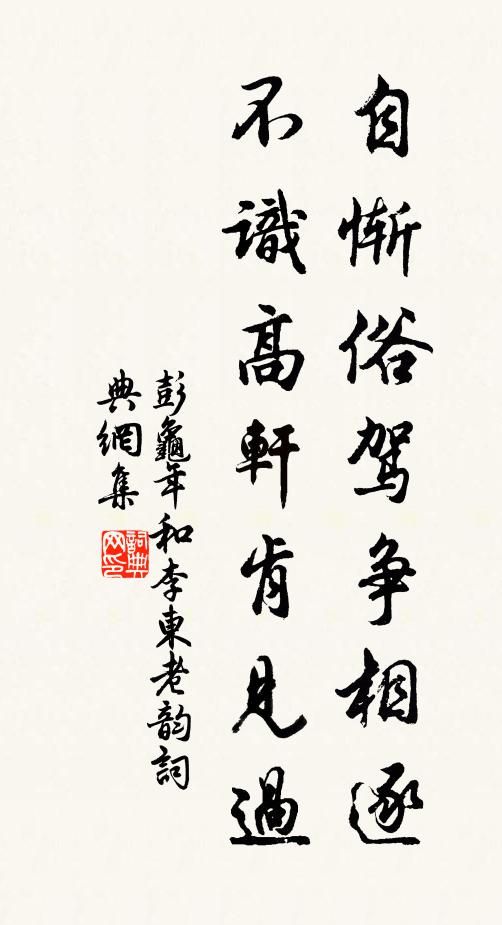 自慚俗駕争相逐
不識高軒肯見過
彭龜年和李東老韵詞
典網集
詞典
网印